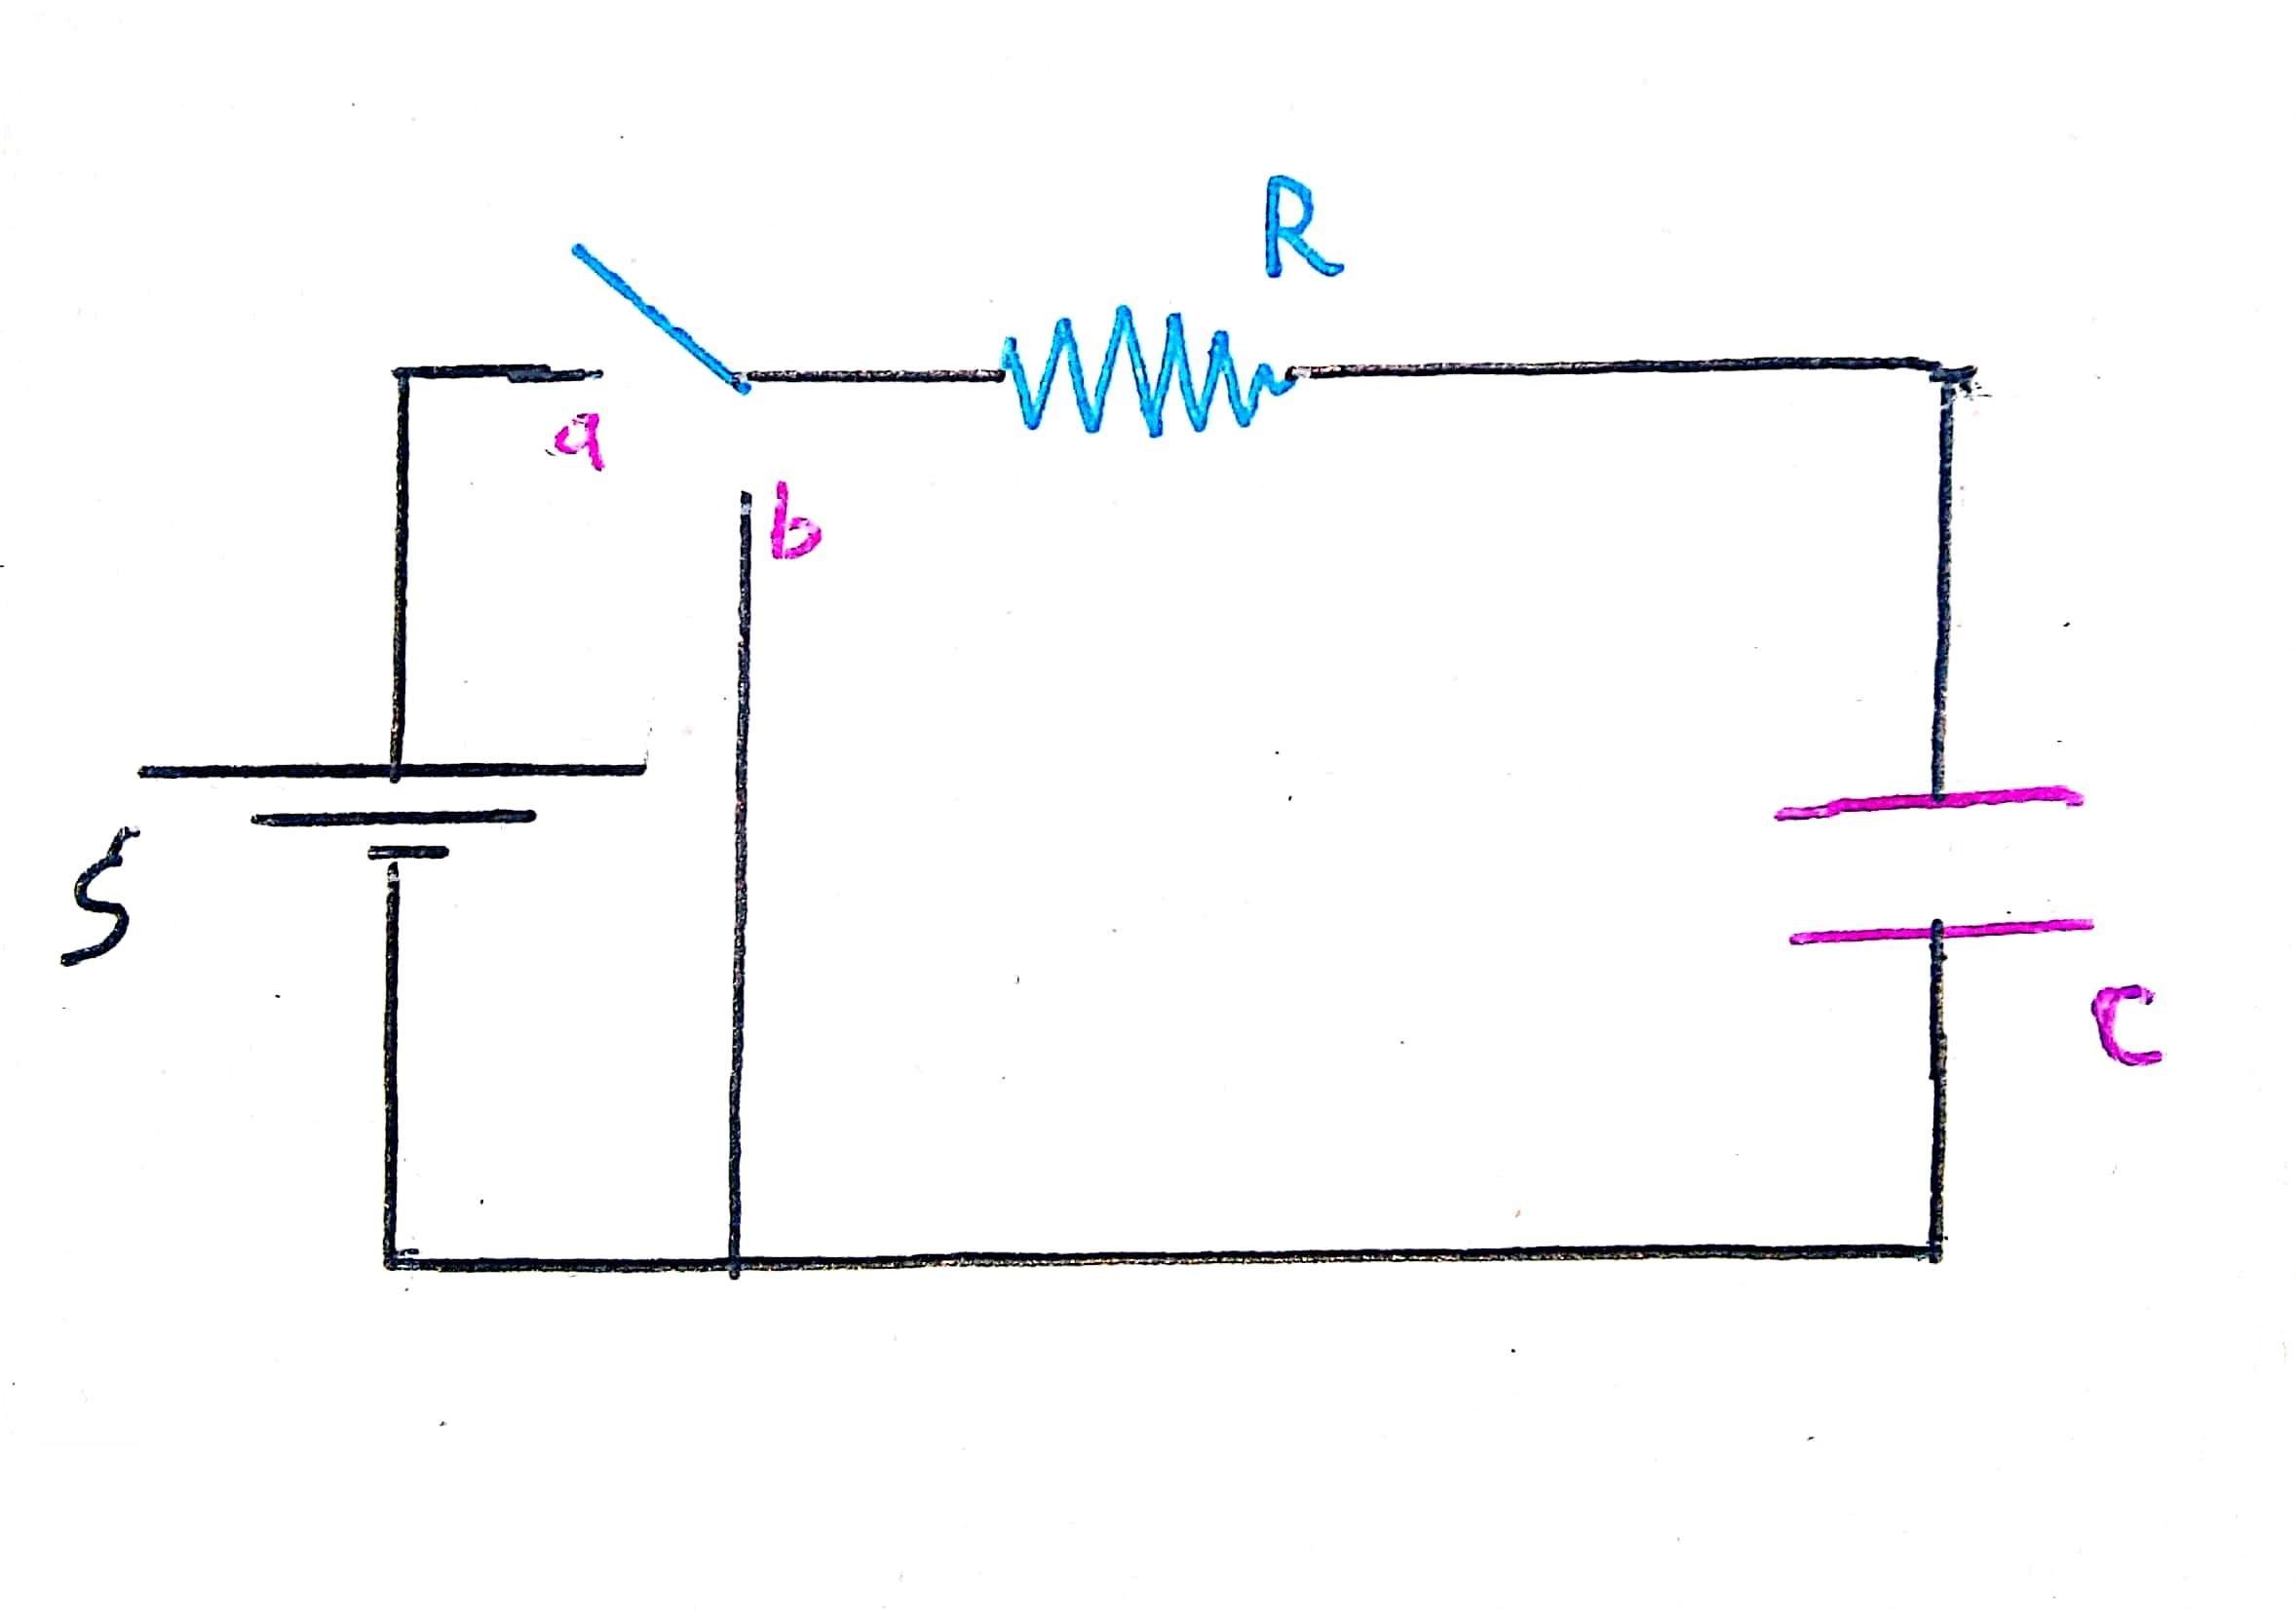 R
a
b
S
C